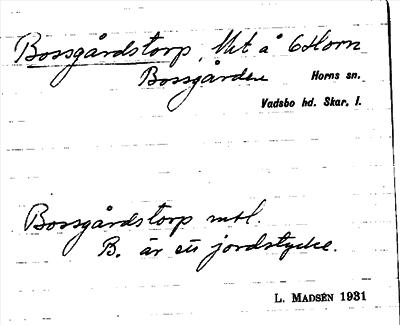 Bossgårdstorp, Met å 6 Horn
Bossgården Horns sn.
Vadsbo hd. Skar. l.
Bossgårdstorp mtl.
B. är ett jordstycke.
L. MADSÉN 1931